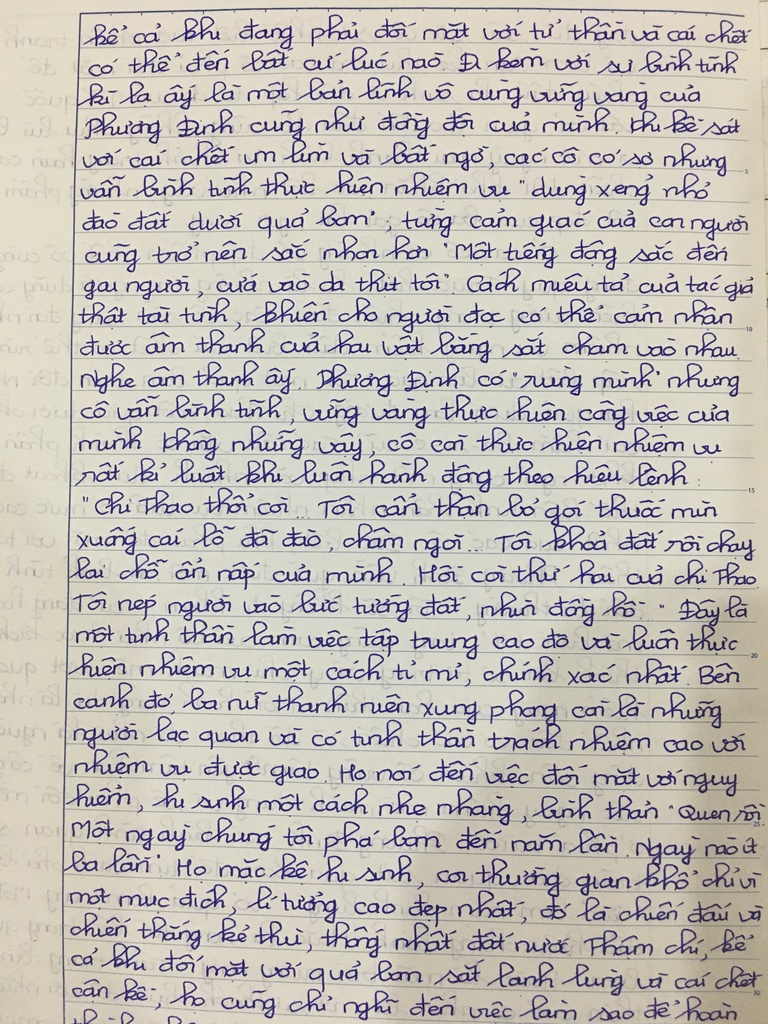 kể cả khi đang phải đối mặt với tử thần và cái chết
có thể đến bất cứ lúc nào. Đi kèm với sự bình tĩnh
kì lạ ấy là một bản lĩnh vô cùng vững vàng của
Phương Định cũng như đồng đội của mình. Khi kề sát
với cái chết im lìm và bất ngờ, các cô có sợ nhưng
vẫn bình tĩnh thực hiện nhiệm vụ "dùng xẻng nhỏ
đào đất dưới quả bom"; từng cảm giác của con người
cũng trở nên sắc nhọn hơn "Một tiếng động sắc đến
gai người, cứa vào da thịt tôi". Cách miêu tả của tác giả
thật tài tình, khiến cho người đọc có thể cảm nhận
được âm thanh của hai vật bằng sắt chạm vào nhau.
Nghe âm thanh ấy, Phương Định có "rùng mình" nhưng
cô vẫn bình tĩnh, vững vàng thực hiện công việc của
mình. Không những vậy, cô còn thực hiện nhiệm vụ
rất kỉ luật khi luôn hành động theo hiệu lệnh:
"Chị Thao thổi còi... Tôi cẩn thận bỏ gói thuốc mìn
xuống cái lỗ đã đào, châm ngòi... Tôi khỏa đất rồi chạy
lại chỗ ẩn nấp của mình. Hồi còi thứ hai của chị Thao.
Tôi nép người vào bức tường đất, nhìn đồng hồ." Đây là
một tinh thần làm việc tập trung cao độ và luôn thực
hiện nhiệm vụ một cách tỉ mỉ, chính xác nhất. Bên
cạnh đó, ba nữ thanh niên xung phong còn là những
người lạc quan và có tinh thần trách nhiệm cao với
nhiệm vụ được giao. Họ nói đến việc đối mặt với nguy
hiểm, hi sinh một cách nhẹ nhàng, bình thản "Quen rồi.
Một ngày chúng tôi phá bom đến năm lần. Ngày nào ít
ba lần". Họ mặc kệ hi sinh, coi thường gian khổ chỉ vì
một mục đích, lí tưởng cao đẹp nhất, đó là chiến đấu và
chiến thắng kẻ thù, thống nhất đất nước. Thậm chí, kể
cả khi đối mặt với quả bom sắt lạnh lùng và cái chết
cận kề, họ cũng chỉ nghĩ đến việc làm sao để hoàn